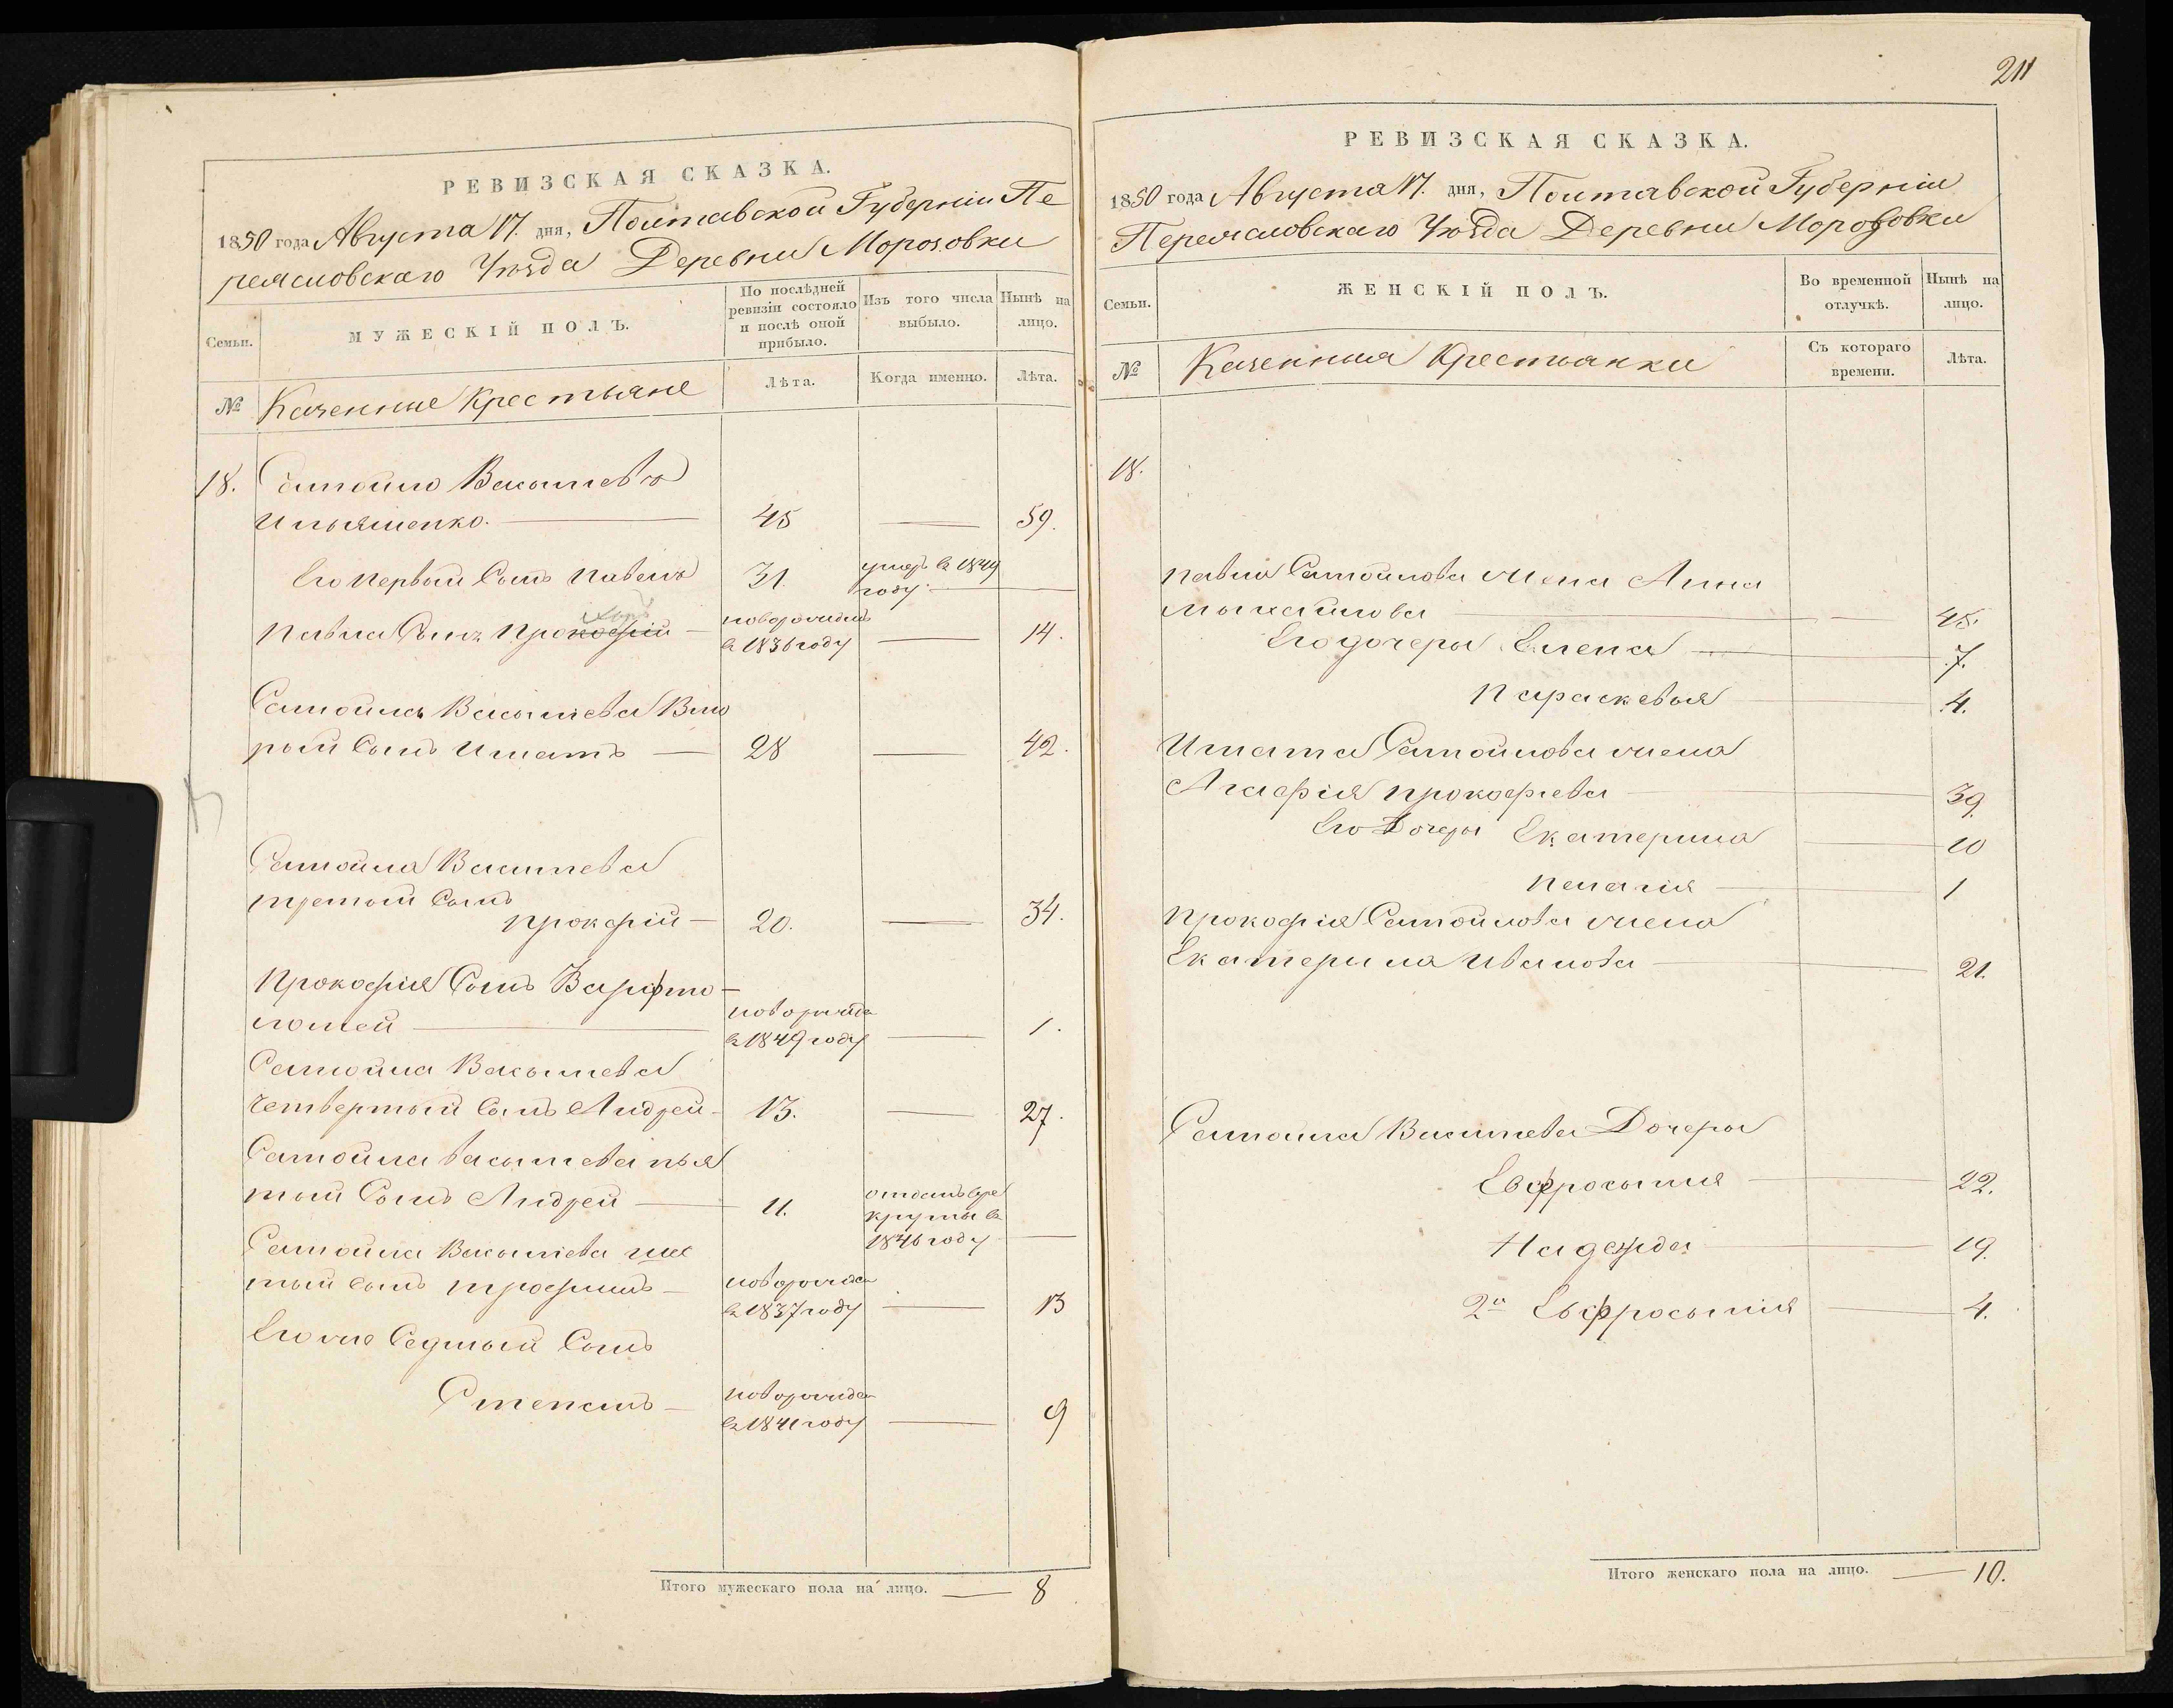 РЕВИЗСКАЯ СКАЗКА.
1850 года Августа 17. дня, Полтавской Губерніи Пе
реяславскаго Уѣзда Деревни Морозовки
Семьи.
МУЖЕСКІЙ ПОЛЪ.
По послѣдней ревизіи состояло и послѣ оной прибыло.
Изъ того числа выбыло.
Нынѣ на лицо.
№
Казенные Крестьяне
Лѣта.
Когда именно.
Лѣта.
18. Самойло Васильевъ
Ильяшенко. 45 59.
Его первый Сынъ Павелъ 31. умер в 1849
году
Павла Сынъ Прокофій новорожден
в 1836 году 14.
Самойла Васильева Вто
рый Сынъ Игнатъ 28 42.
Самойла Васильева
третый Сынъ
Прокофій 20. 34.
Прокофія Сынъ Варфто
ломей новорожден
в 1849 году 1.
Самойла Васильева
Четвертый Сынъ Андрей 13. 27.
Самойла Васильева пья
тый Сынъ Андрей 11. отданъ в ре
круты в
1846 году
Самойла Васильева шес
тый Сынъ Трофимъ новорожден
в 1837 году 13
Его же Седмый Сынъ
Степанъ новорожден
в 1841 году 9
Итого мужескаго пола на лицо. 8
211
РЕВИЗСКАЯ СКАЗКА.
1850 года Августа 17. дня, Полтавской Губерніи
Переяславскаго Уѣзда Деревни Морозовки
Семьи.
ЖЕНСКІЙ ПОЛЪ.
Во временной отлучкѣ.
Нынѣ на лицо.
№
Казенныя Крестьянки
Съ котораго времени.
Лѣта.
18.
Павла Самойлова жена Анна
Михайлова 45.
Его дочеры Елена 7.
Параскевыя 4.
Игната Самойлова жена
Агафія Прокофіева 39.
Его Дочеры Екатерина 10
Пелагія 1
Прокофія Самойлова жена
Екатерина Иванова 21.
Самойла Васильева Дочеры
Евфросынія 22.
Надежда 19.
2я Евфросынія 4.
Итого женскаго пола на лицо. 10.